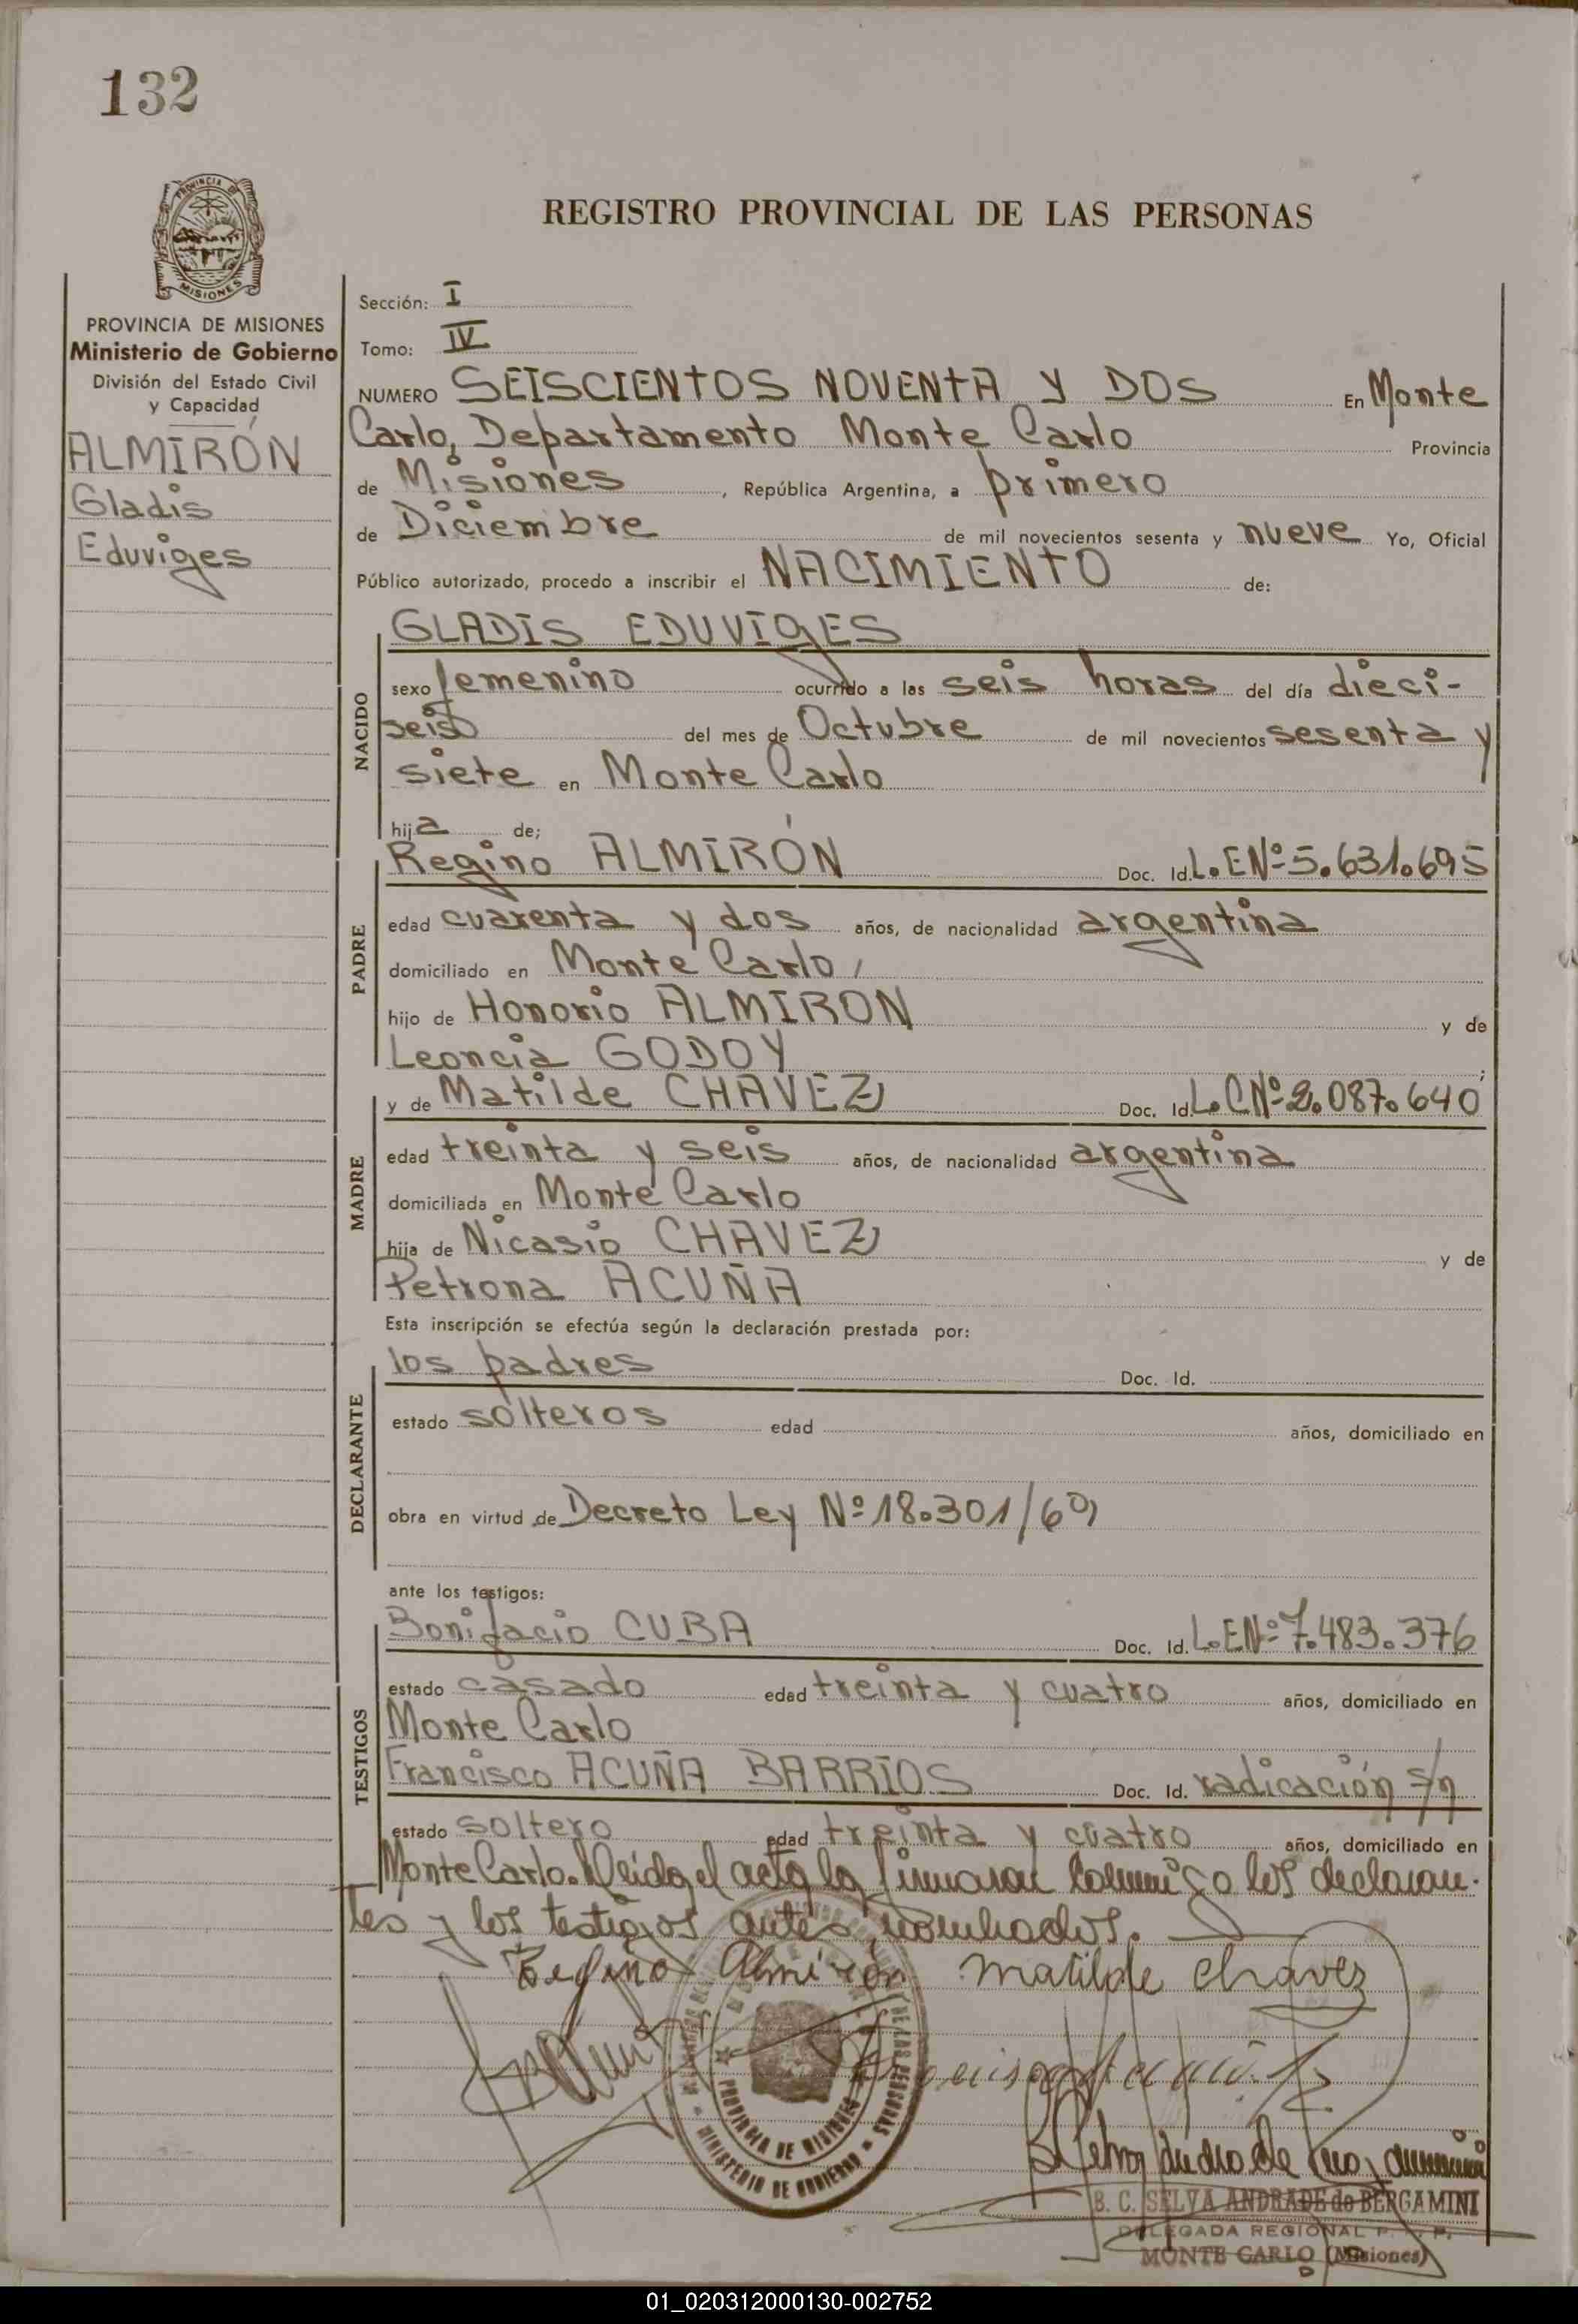 132
PROVINCIA DE
MISIONES
REGISTRO PROVINCIAL DE LAS PERSONAS
PROVINCIA DE MISIONES
Ministerio de Gobierno
División del Estado Civil
y Capacidad
ALMIRÓN
Gladis
Eduviges
Sección: I
Tomo: IV
NUMERO SEISCIENTOS NOVENTA Y DOS En Monte
Carlo, Departamento Monte Carlo Provincia
de Misiones, República Argentina, a primero
de Diciembre de mil novecientos sesenta y nueve Yo, Oficial
Público autorizado, procedo a inscribir el NACIMIENTO de:
NACIDO
GLADIS EDUVIGES
sexo femenino ocurrido a las seis horas del día dieci-
seis del mes de Octubre de mil novecientos sesenta y
siete en Monte Carlo
hija de;
PADRE
Regino ALMIRÓN Doc. Id. L.E Nº 5.631.695
edad cuarenta y dos años, de nacionalidad argentina
domiciliado en Monte Carlo,
hijo de Honorio ALMIRON y de
Leoncia GODOY;
MADRE
y de Matilde CHAVEZ Doc. Id. L.C Nº 2.087.640
edad treinta y seis años, de nacionalidad argentina
domiciliada en Monte Carlo
hija de Nicasio CHAVEZ y de
Petrona ACUÑA
Esta inscripción se efectúa según la declaración prestada por:
DECLARANTE
los padres Doc. Id.
estado solteros edad años, domiciliado en
obra en virtud de Decreto Ley Nº 18.301/69
ante los testigos:
TESTIGOS
Bonifacio CUBA Doc. Id. L.E Nº 7.483.376
estado casado edad treinta y cuatro años, domiciliado en
Monte Carlo
Francisco ACUÑA BARRIOS Doc. Id. radicación s/n
estado soltero edad treinta y cuatro años, domiciliado en
Monte Carlo. Leida el acta la firmaran conmigo los declaran-
tes y los testigos antes nombrados.
Regino Almirón Matilde Chavez
PROVINCIA DE MISIONES
MINISTERIO DE GOBIERNO
DE LAS PERSONAS
B. C. SELVA ANDRADE de BERGAMINI
DELEGADA REGIONAL
MONTE CARLO (Misiones)
01_020312000130-002752